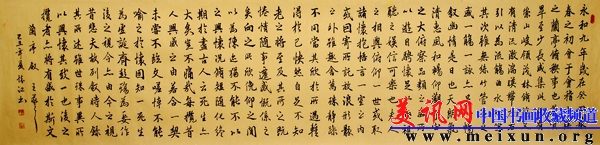 永和九年歲在癸
春之初會于會稽
之蘭亭脩禊事
畢至少長咸集
崇山峻領茂林脩
有清流激湍
其次雖無絲
盛一觴一詠
敘幽情是日也天朗氣
清惠風和暢仰觀宇
之大俯察品類
遊目騁懷足以極視
聽之娛信可樂也夫
之相與俯仰一世或取
諸懷抱悟言一室之內
或因寄所託放浪形骸
之外雖趣舍萬殊靜躁
不同當其欣於所遇暫
得於己快然自足不知
老之將至及其所之既
惓情隨事遷感慨係之
矣向之所欣俛仰之閒
以為陳迹猶不能不以
之興懷況脩短隨化終
期於盡古人云死生亦
大矣豈不痛哉每攬昔
人興感之由若合一契
未嘗不臨文嗟悼不能
喻之於懷固知一死生
為虛誕齊彭殤為妄作
後之視今亦由今之視
昔悲夫故列敘時人錄
其所述雖世殊事異所
以興懷其致一也後之
覽者亦將有感於斯文
蘭亭敘
己丑年夏
美讯网 中国书画收藏频道
www.meixun.org